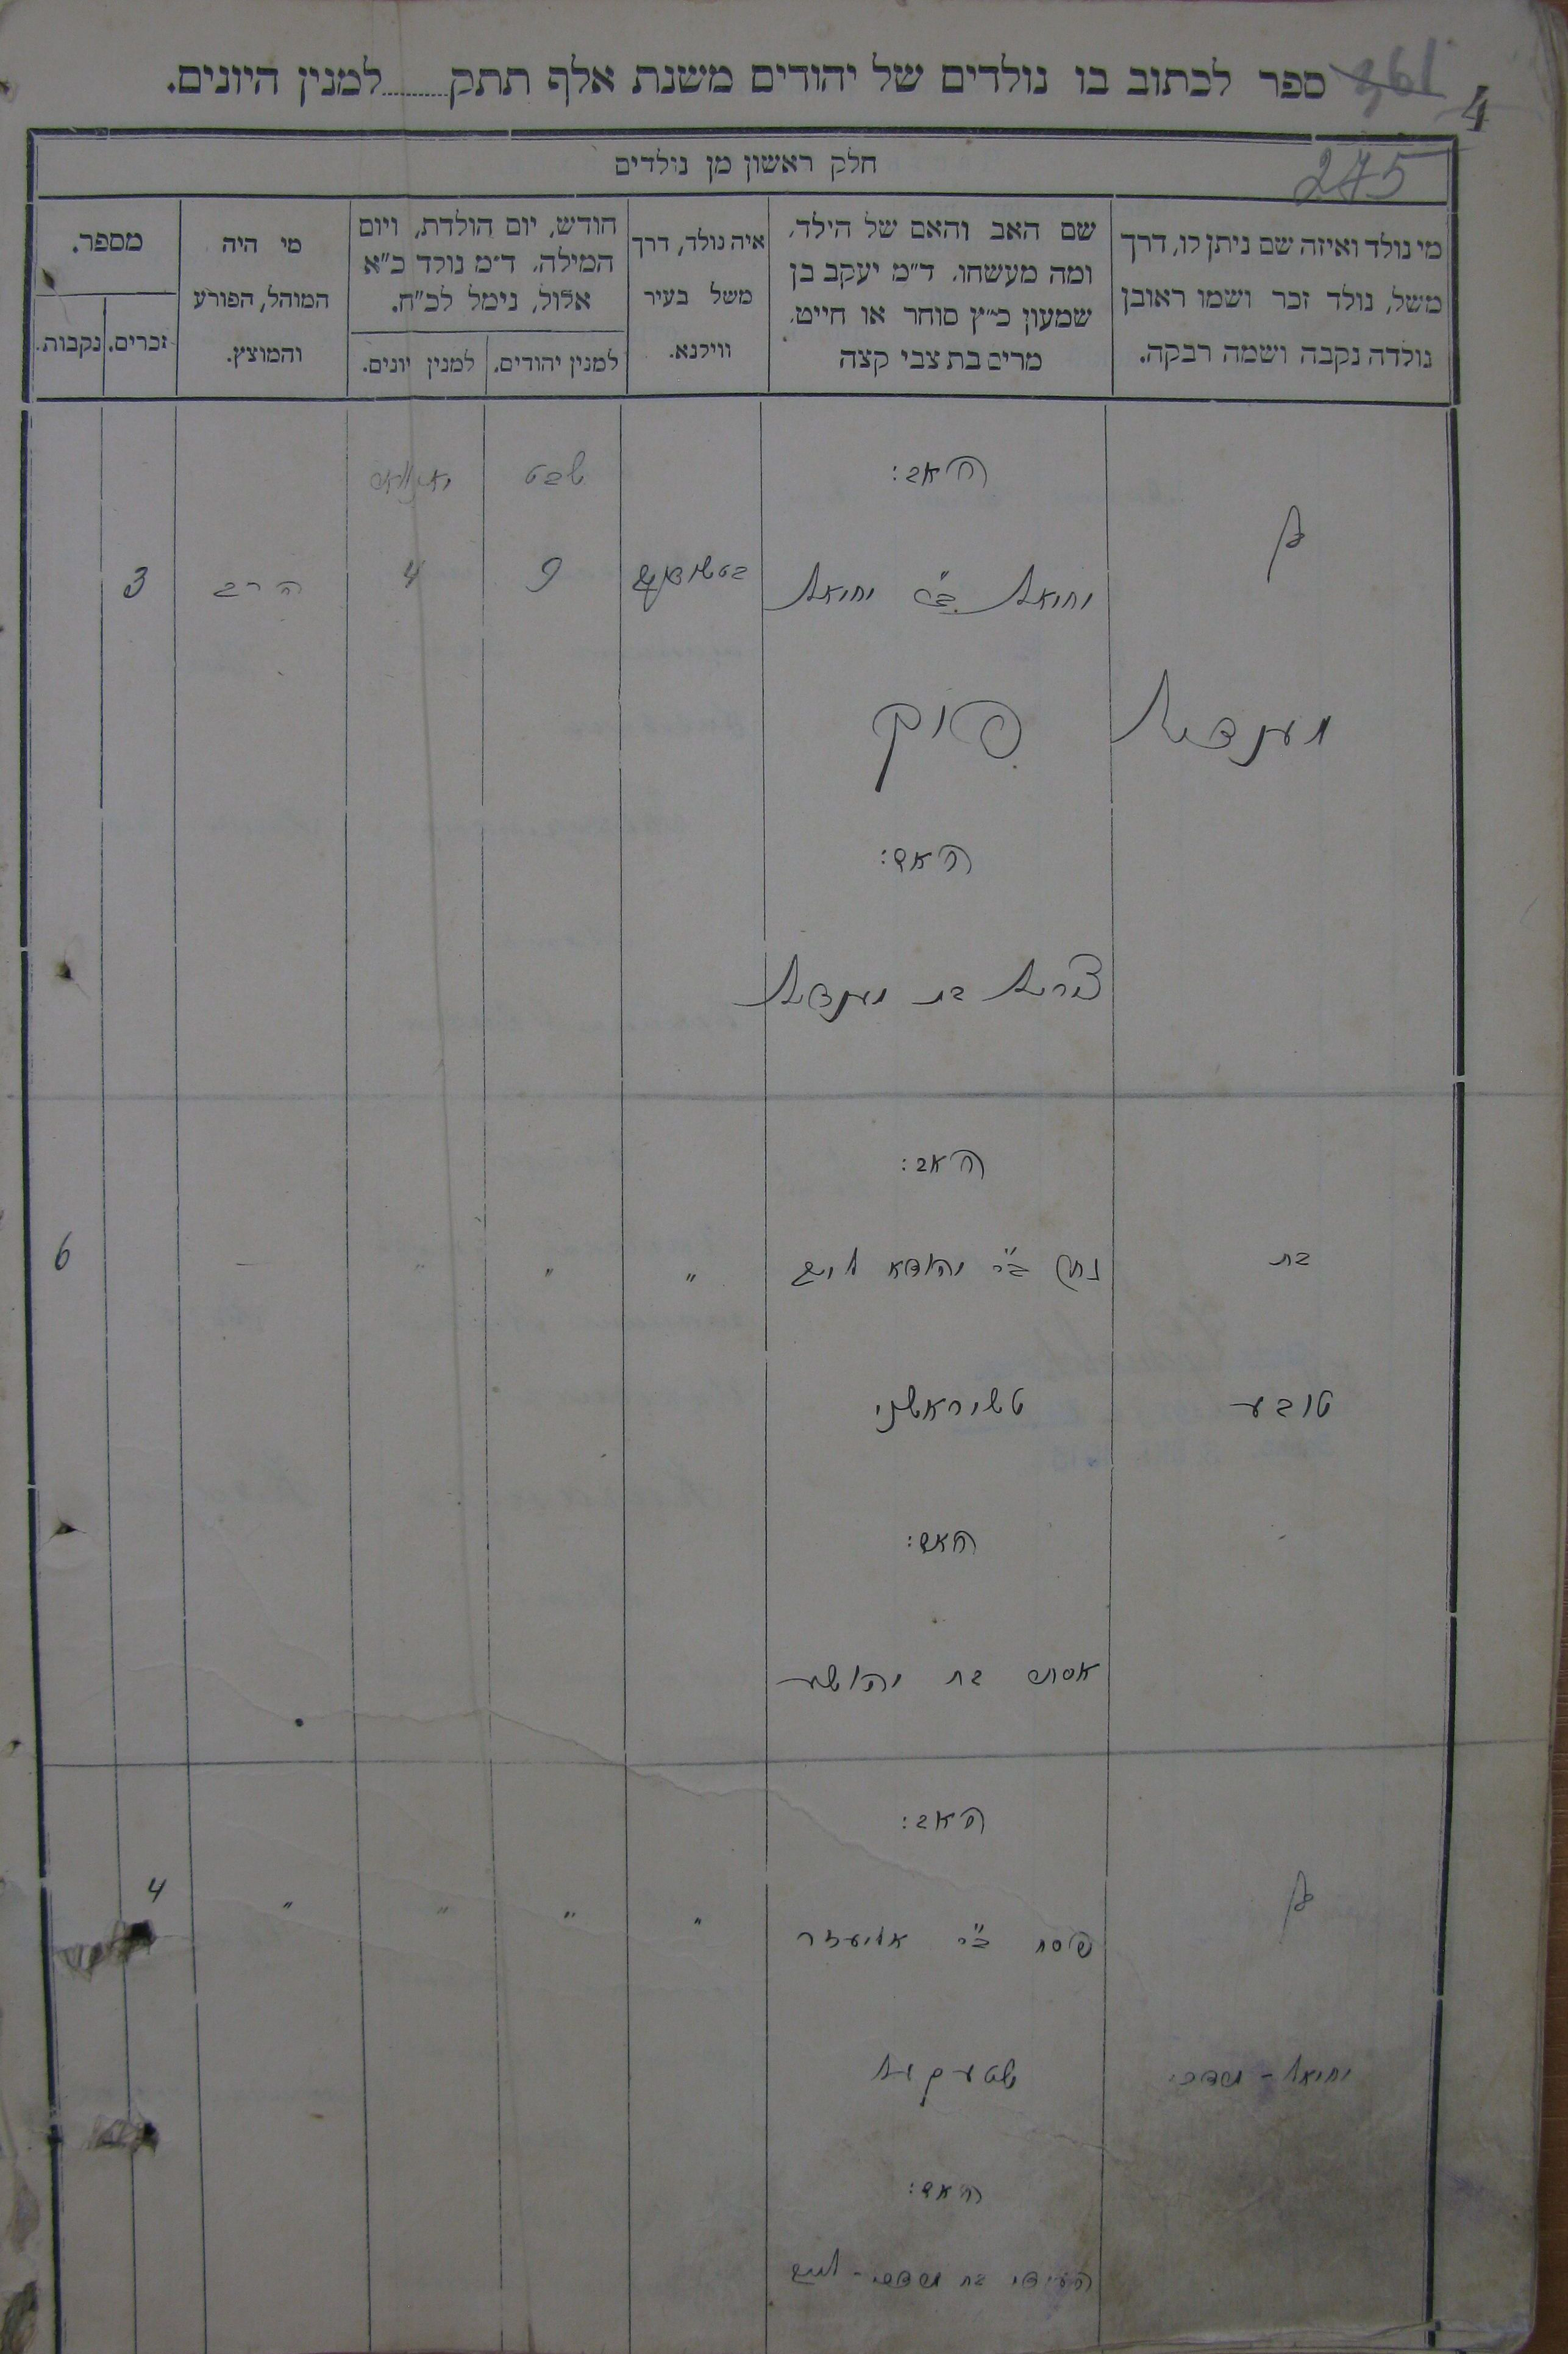 ספר לכתוב בו נולדים של יהודים משנת אלף תתק........למנין היונים.
4
275
חלק ראשון מן נולדים
מי נולד ואיזה שם ניתן לו, דרך
משל, נולד זכר ושמו ראובן
נולדה נקבה ושמה רבקה.
שם האב והאם של הילד,
ומה מעשהו, ד״מ יעקב בן
שמעון כ״ץ סוחר או חייט,
מרים בת צבי קצה
איה נולד, דרך
משל בעיר
ווילנא.
חודש, יום הולדת, ויום
המילה, ד״מ נולד כ״א
אלול, נימל לכ״ח.
למנין יהודים.
למנין יונים.
מי היה
המוהל, הפורע
והמוצץ.
מספר.
זכרים.
נקבות.
האב:
שבט
בן
יחיאל ב״ר יחיאל
9
4
הרב
3
מענדיל
פוק
האם:
בת מענדל
האב:
בת
נתן ב״ר יהודא ליב
"
"
"
6
טובע
האם:
אסתר בת יהושע
האב:
בן
פסח ב״ר אליעזר
"
"
"
"
4
יחיאל -
האם:
בת